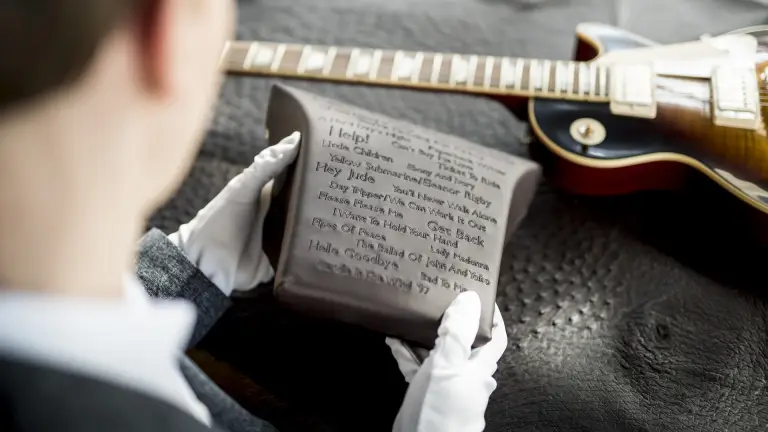 Help!
Can't Buy Me Love
Ticket To Ride
Little Children
Ebony And Ivory
Yellow Submarine/Eleanor Rigby
Hey Jude
You'll Never Walk Alone
Day Tripper/We Can Work It Out
Please Please Me
Get Back
I Want To Hold Your Hand
Lady Madonna
Pipes Of Peace
The Ballad Of John And Yoko
Hello Goodbye
Bad To Me
Candle In The Wind '97